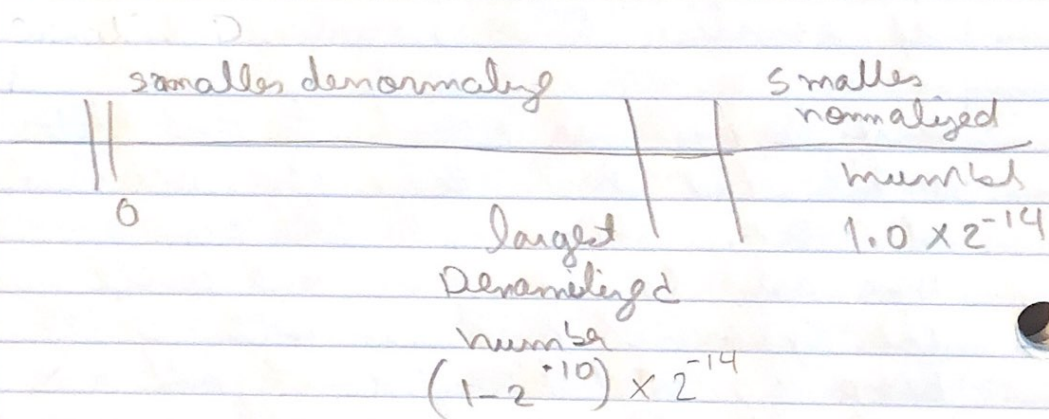 smalles denormaling
smalles
normalized
number
0
1.0 × 2^-14
largest
Denamilingd
number
(1-2^-10) × 2^-14